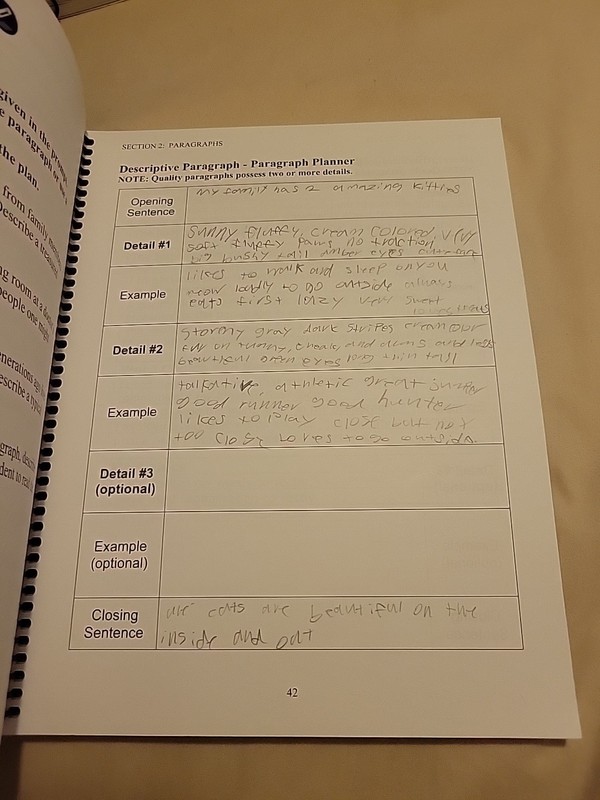 given in the prompt
e paragraph or
the plan.
from family
Describe a treasured
ng room at a
people one might
enerations ago
escribe a typical
graph, descri
dent to read
SECTION 2: PARAGRAPHS
Descriptive Paragraph - Paragraph Planner
NOTE: Quality paragraphs possess two or more details.
Opening Sentence
my family has 2 amazing kitties
Detail #1
sunny fluffy, cream colored, very
soft fluffy paws no traction
big bushy tail amber eyes
Example
likes to walk and sleep on you
meow loudly to go outside always
eats first lazy very sweet
Detail #2
stormy gray dark stripes cream
fur on tummy, and arms and legs
beautiful green eyes long thin tail
Example
talkative, athletic great jumper
good runner good hunter
likes to play close but not
too close Loves to go outside.
Detail #3
(optional)
Example
(optional)
Closing Sentence
are cats are beautiful on the
inside and out
42